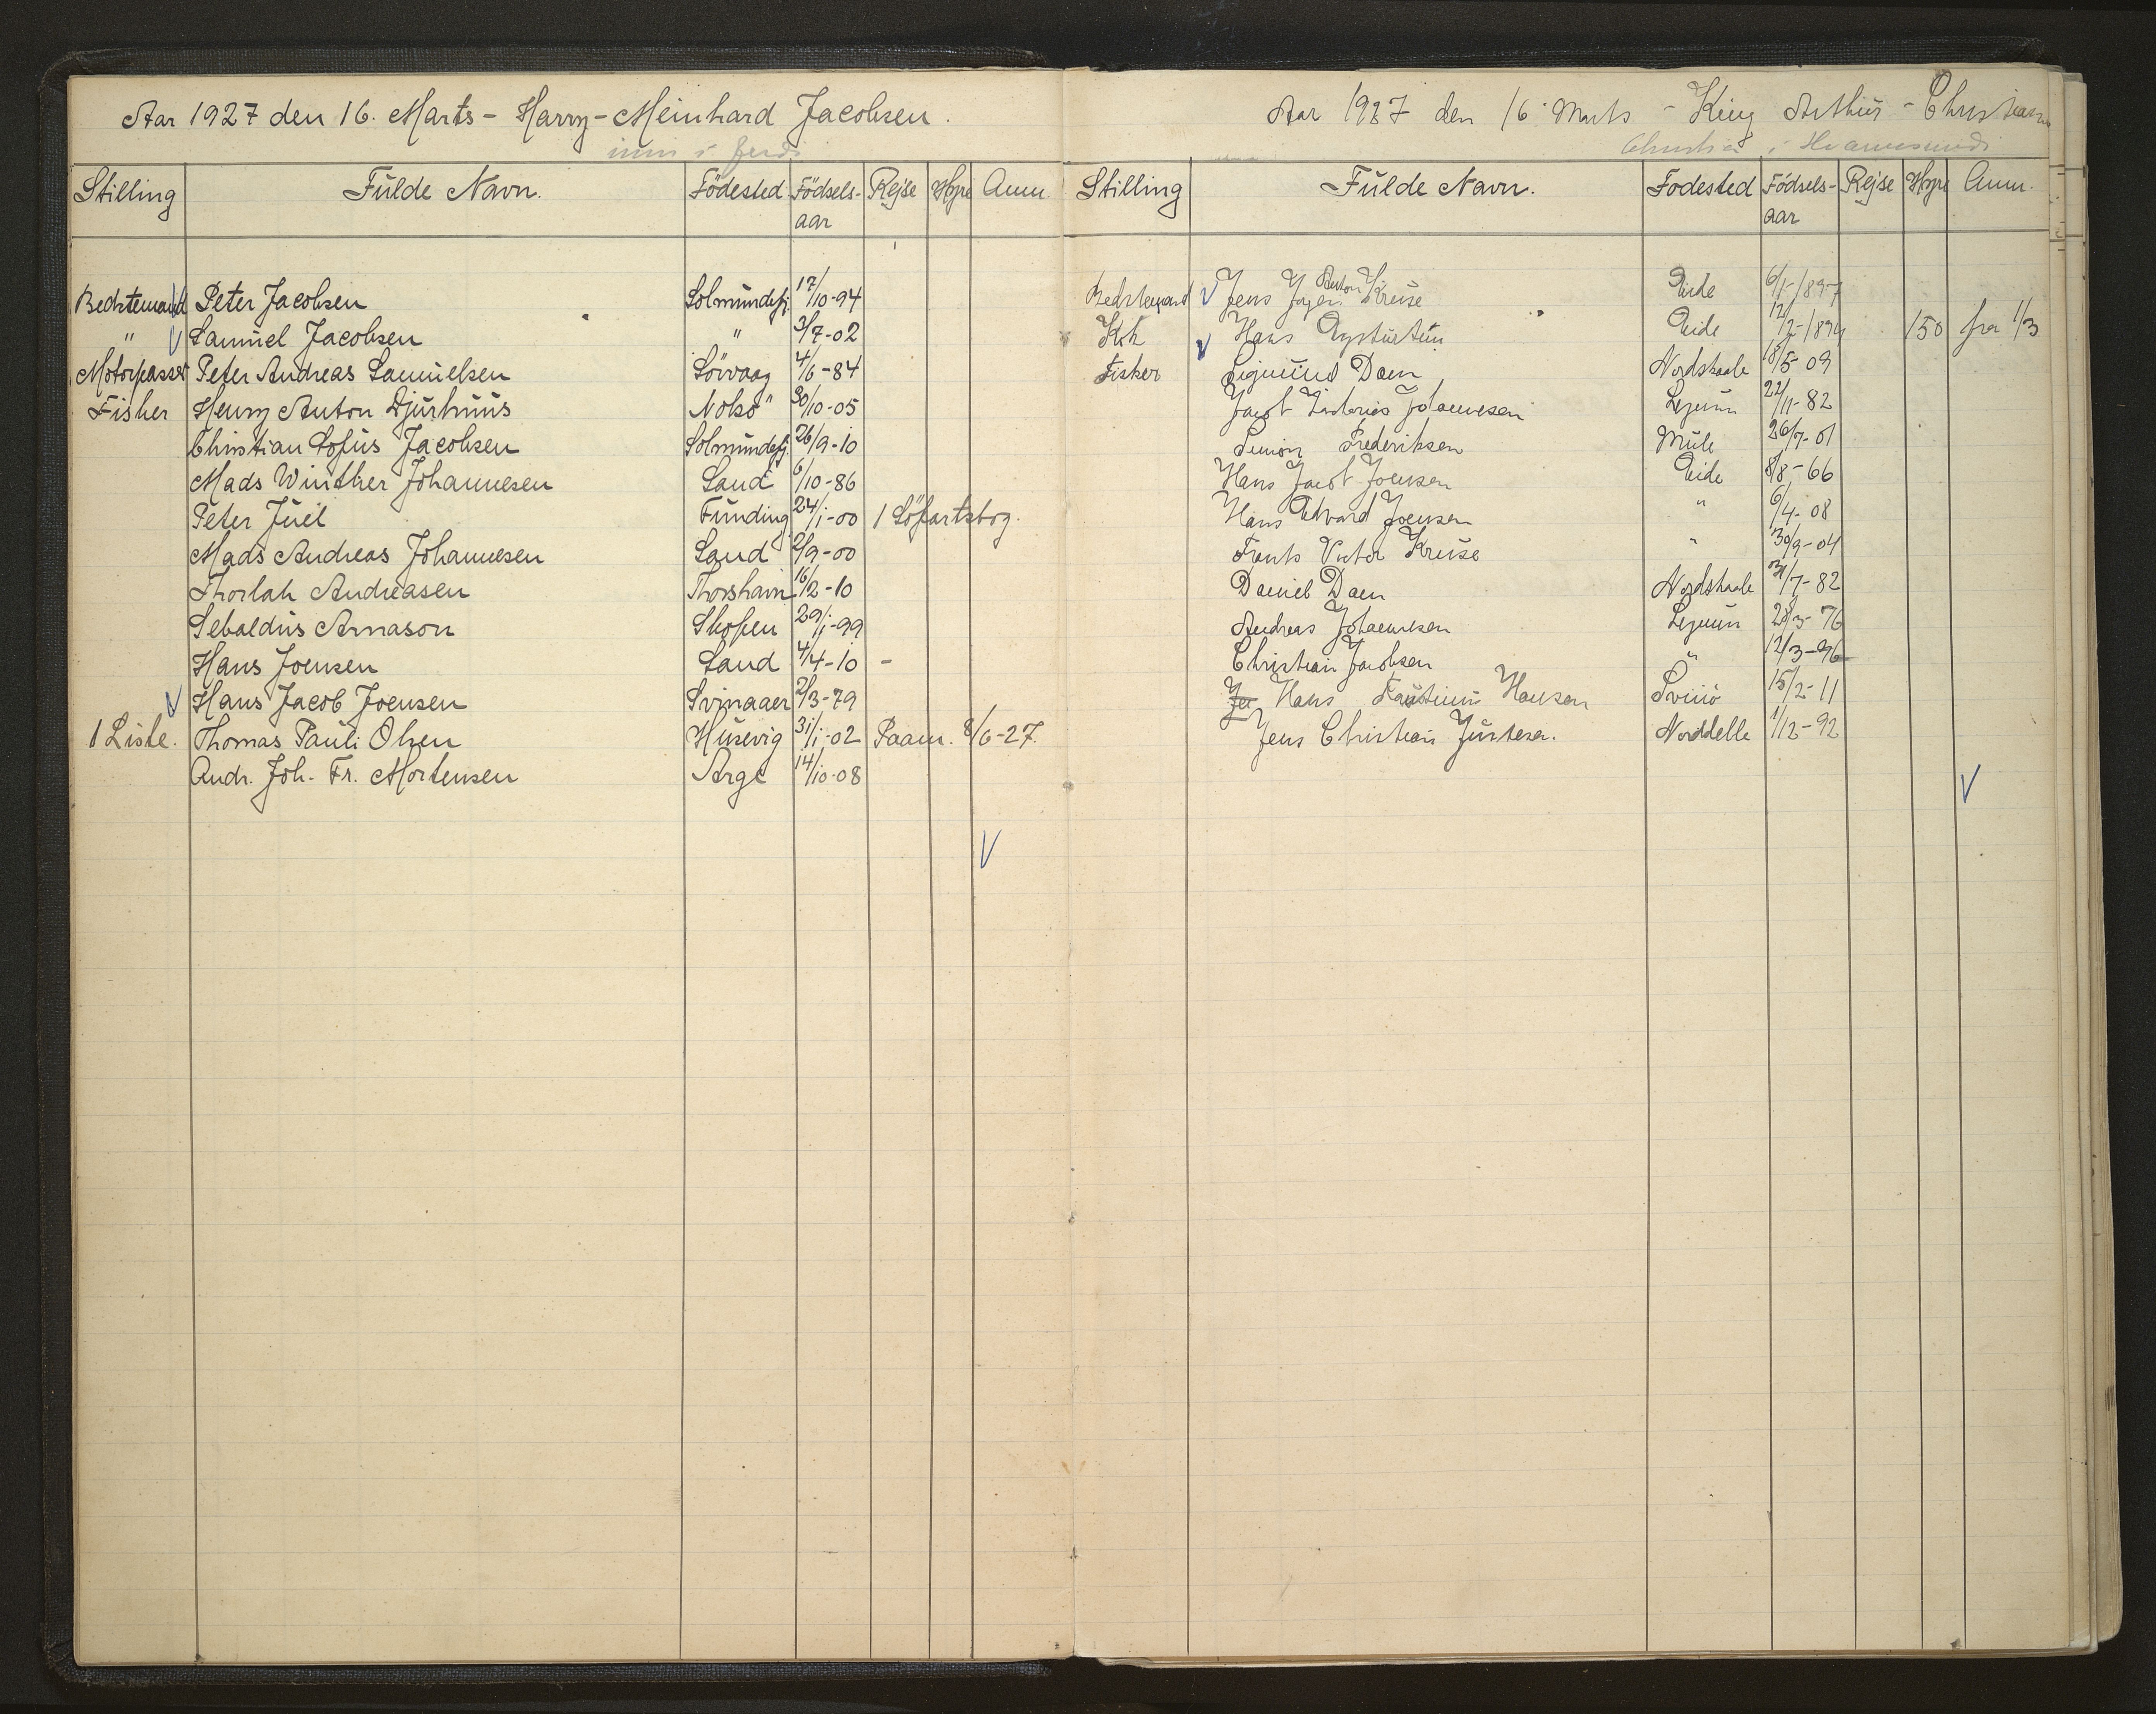 Aar 1927 den 16. Marts - Harry - Meinhard Jacobsen.
Stilling Fulde Navn. Födested Födsels-aar Rejse Hyre Anm.
Bedstemand Peter Jacobsen Solmundefj. 17/10-94
" Samuel Jacobsen " 3/7-02
Motorpasser Peter Andreas Samuelsen Sörvaag 4/6-84
Fisker Henry Anton Djurhuus Nolsö 30/10-05
Christian Sofus Jacobsen Solmundefj. 26/9-10
Mads Winther Johannesen Sand 6/10-86
Peter Juel Funding 24/1-00 1 Söfartsbog.
Mads Andreas Johannesen Sand 2/9-00
Thorlak Andreasen Thorshavn 16/2-10
Sebaldus Arnason Skopen 29/11-99
Hans Joensen Sand 4/4-10 -
Hans Jacob Joensen Svinaaer 2/3-79
1 Liste. Thomas Pauli Olsen Husevig 31/1-02 Paam. 8/6-27.
Andr. Joh. Fr. Mortensen Arge 14/10-08
Aar 1927 den 16 Marts - King Arthur - Christiansen
Christian i Hvannasundi
Stilling Fulde Navn. Fodested Födsels-aar Rejse Hyre Anm.
Bedstemand Jens Anton Kruse Eide 6/1-1897
Kok Hans Eysturtun Eide 12/2-1894 150 fra 1/3
Fisker Sigmund Dam Nordskaale 18/5-09
Jacob Johannesen Lejnum 22/11-82
Simon Frederiksen Mule 26/7-01
Hans Jacob Joensen Eide 8/8-66
Hans Edvard Joensen " 6/4-08
Frants Victor Kruse " 30/9-04
Daniel Dam Nordskaale 31/7-82
Andreas Johannesen Lejnum 28/3-76
Christian Jacobsen " 12/3-96
Hans Faustinus Hansen Svinö 15/2-11
Jens Christian Justesen. Norddelle 1/12-92